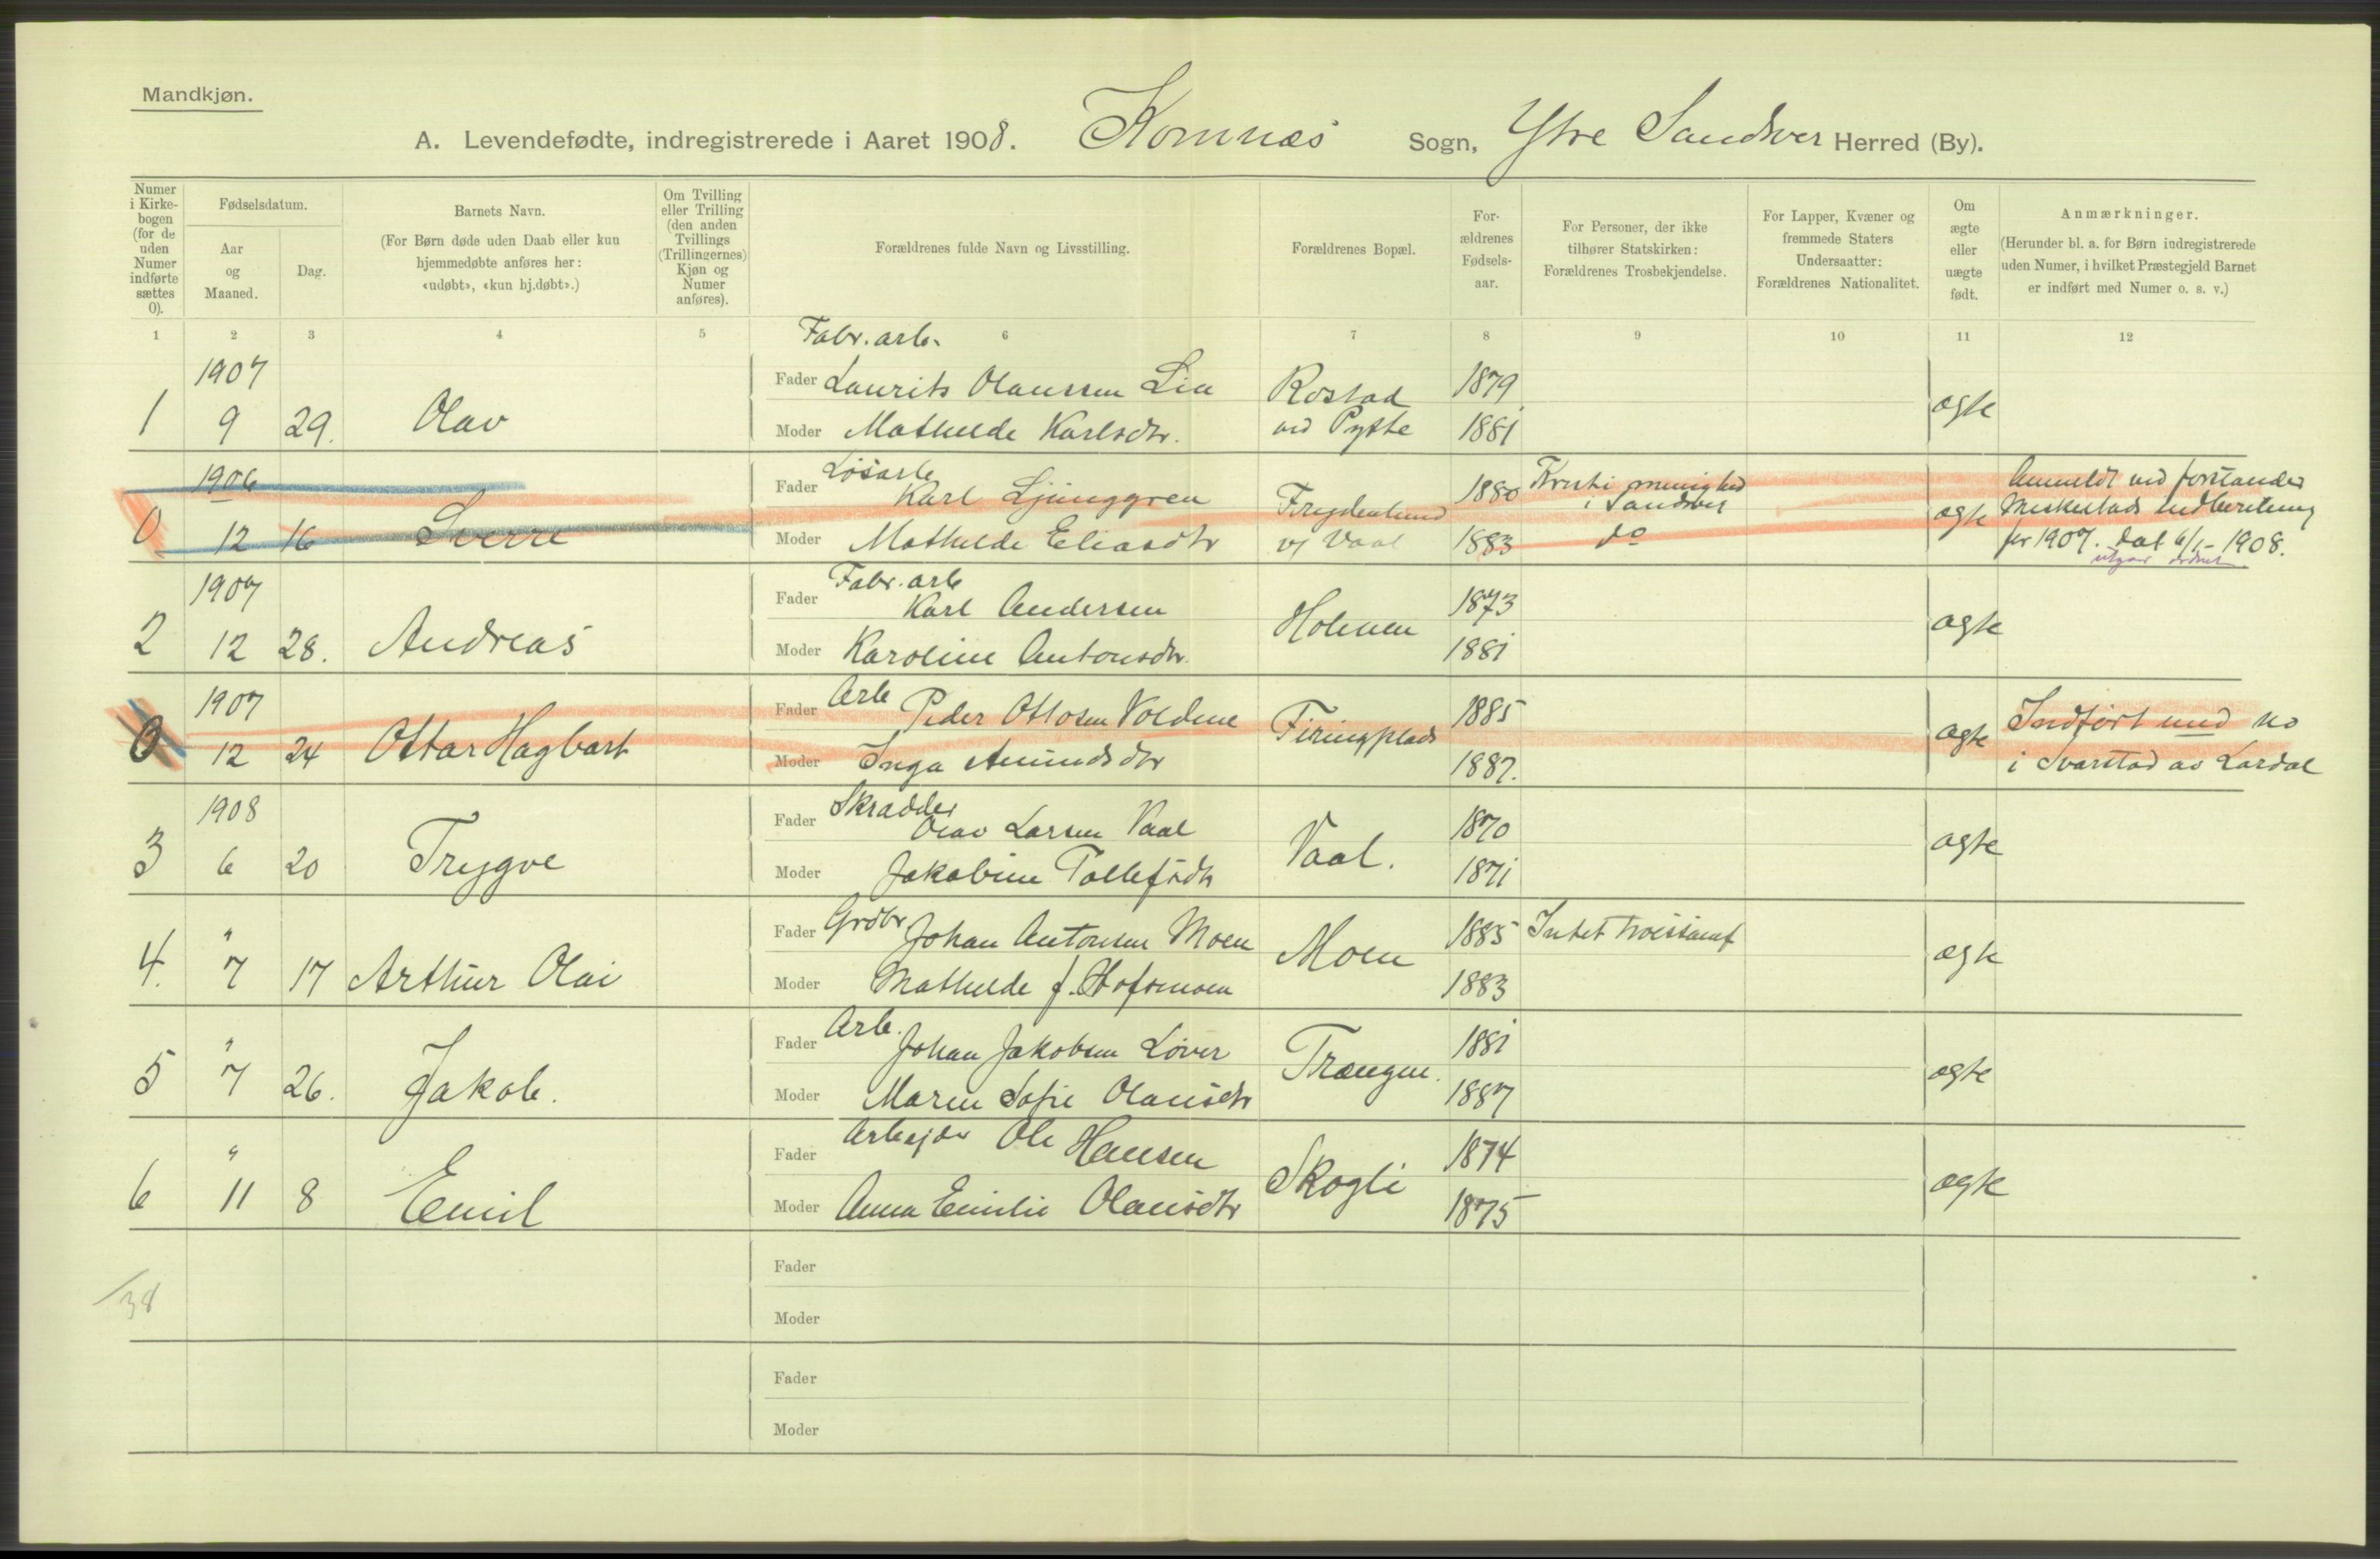 Mandkjøn.
A. Levendefødte, indregistrerede i Aaret 1908. Komnæs Sogn, Ytre Sandsver Herred (By).
Numer i Kirke-bogen (for de uden Numer indførte sættes 0).
Fødselsdatum.
Aar og Maaned.
Dag.
Barnets Navn.
(For Børn døde uden Daab eller kun hjemmedøbte anføres her: «udøbt», «kun hj.døbt».)
Om Tvilling eller Trilling (den anden Tvillings (Trillingernes) Kjøn og Numer anføres).
Forældrenes fulde Navn og Livsstilling.
Forældrenes Bopæl.
For-ældrenes Fødsels-aar.
For Personer, der ikke tilhører Statskirken: Forældrenes Trosbekjendelse.
For Lapper, Kvæner og fremmede Staters Undersaatter: Forældrenes Nationalitet.
Om ægte eller uægte født.
Anmærkninger.
(Herunder bl. a. for Børn indregistrerede uden Numer, i hvilket Præstegjeld Barnet er indført med Numer o. s. v.)
1 2 3 4 5 6 7 8 9 10 11 12
Fabr. arb.
1907 Fader Laurits Olaussen Lia Rostad 1879
1 9 29. Olav Moder Mathilde Karlsdtr. ved Pytte 1881 ægte
1906 Løsarb
Fader Karl Ljunggren Frydenlund 1880 Kristi menighed i Sandsver Anmeldt ved forstander
0 12 16 Sverre Moder Mathilde Eliasdtr v/ Vaal 1883 do ægte indberetning
for 1907. Dat 6/1-1908.
1907 Fabr. arb
Fader Karl Andersen Holmen 1873
2 12 28. Andreas Moder Karoline Antonsdtr. 1881 ægte
1907 Fader Arb Peder Ottosen Voldene Firingplads 1885 Indført med no
0 12 24 Ottar Hagbart Moder Inga Amundsdtr 1887. ægte i Svarstad av Lardal
1908 Skrædder
Fader Olav Larsen Vaal Vaal. 1870
3 6 20 Trygve Moder Jakobine Tollefsdtr 1871 ægte
" Fader Grdbr Johan Antonsen Moen Moen 1885 Intet troessamf
4. 7 17 Arthur Olai Moder Mathilde f. Hofsmoen 1883 ægte
" Arb.
Fader Johan Jakobsen Løver Trængen. 1881
5 7 26. Jakob. Moder Maren Sofie Olausdtr 1887 ægte
" Fader Arbejder Ole Hansen Skogli 1874
6 11 8 Emil Moder Anna Emilie Olausdtr 1875 ægte
Fader
/38
Moder
Fader
Moder